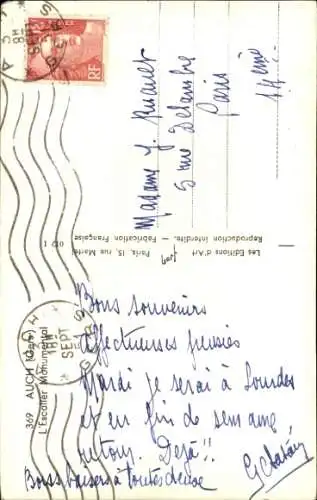 Bons souvenirs
affectueuses pensées
Mardi je serai à Lourdes
et en fin de semaine,
retour. Déjà !!
Bons baisers à toutes deux
Madame J.
5 rue Delambre
Paris
14ème
369 AUCH (Gers)
L'Escalier Monumental
Les Editions d'Art
Paris, 15, rue Martel
Reproduction interdite. — Fabrication Française
RF
SEPT